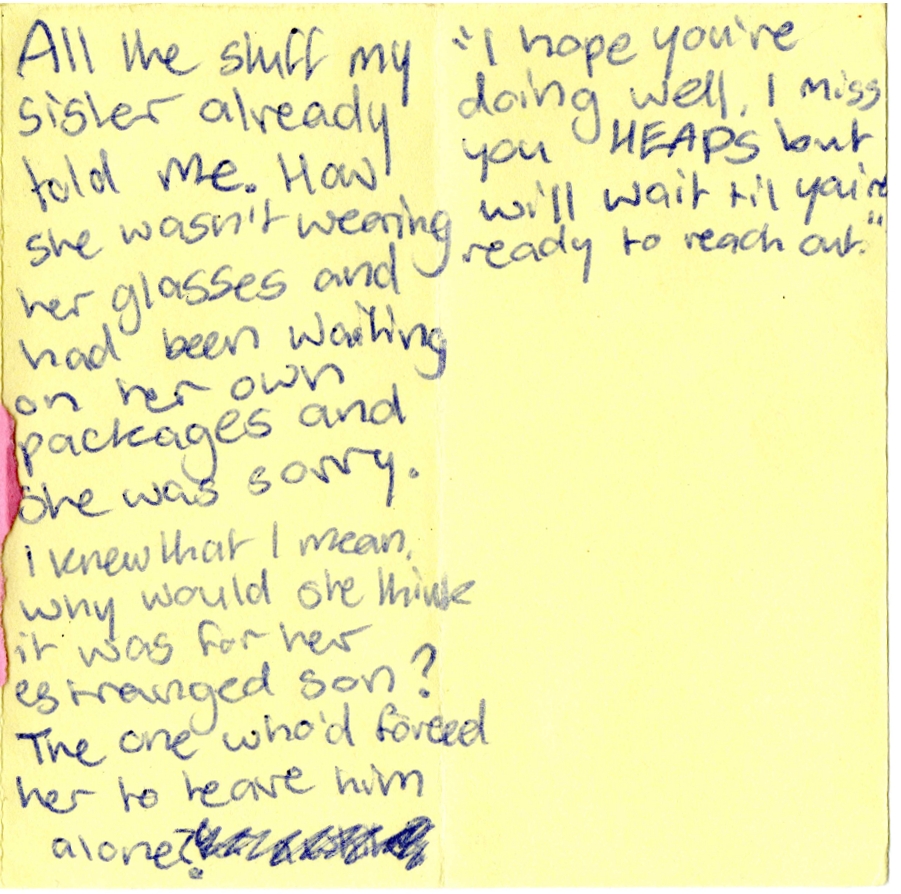 All the stuff my
sister already
told me. How
she wasn't wearing
her glasses and
had been waiting
on her own
packages and
she was sorry.
i knew that I mean,
why would she think
it was for her
estranged son?
The one who'd forced
her to leave him
alone?
"I hope you're
doing well, I miss
you HEAPS but
will wait til you're
ready to reach out."